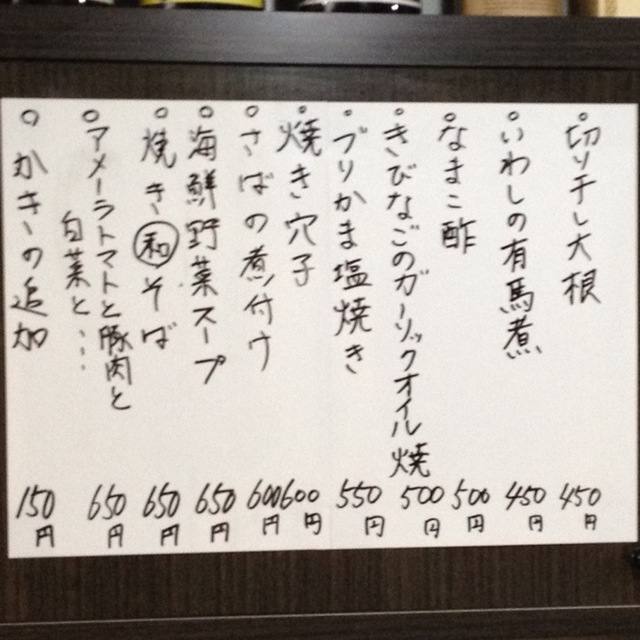 。切り干し大根 450円
。いわしの有馬煮 450円
。なまこ酢 500円
。きびなごのガーリックオイル焼 500円
。ブリかま塩焼き 550円
。焼き穴子 600円
。さばの煮付け 600円
。海鮮野菜スープ 650円
。焼き和そば 650円
。アメーラトマトと豚肉と
白菜と… 650円
。かきの追加 150円